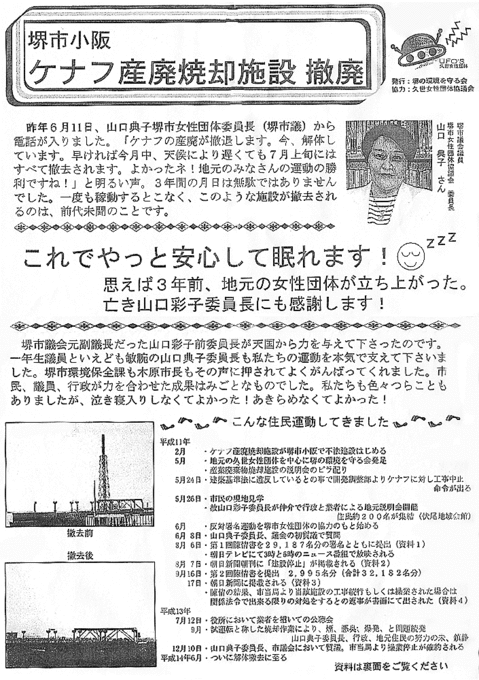 堺市小阪
ケナフ産廃焼却施設 撤廃
UFO'S
久世女性団体
発行：堺の環境を守る会
協力：久世女性団体協議会
昨年6月11日、山口典子堺市女性団体委員長（堺市議）から
電話が入りました。「ケナフの産廃が撤退します。今、解体し
ています。早ければ今月中、天候により遅くても7月上旬には
すべて撤去されます。よかったネ！地元のみなさんの運動の勝
利ですね！」と明るい声。3年間の月日は無駄ではありません
でした。一度も稼動するとこなく、このような施設が撤去され
るのは、前代未聞のことです。
堺市議会議員
堺市女性団体協議会 委員長
山口 典子 さん
これでやっと安心して眠れます！
zzz
思えば3年前、地元の女性団体が立ち上がった。
亡き山口彩子委員長にも感謝します！
堺市議会元副議長だった山口彩子前委員長が天国から力を与えて下さったのです。
一年生議員といえども敏腕の山口典子委員長も私たちの運動を本気で支えて下さいま
した。堺市環境保全課も木原市長もその声に押されてよくがんばってくれました。市
民、議員、行政が力を合わせた成果はみごとなものでした。私たちも色々つらことも
ありましたが、泣き寝入りしなくてよかった！あきらめなくてよかった！
こんな住民運動してきました
平成11年
2月 ・ケナフ産廃焼却施設が堺市小阪で不法建設はじめる
5月 ・地元の久世女性団体を中心に堺の環境を守る会発足
・産業廃棄物焼却施設の説明会のビラ配り
5月24日 ・建築基準法に違反しているとの事で開発調整部よりケナフに対し工事中止
命令が出る
5月26日 ・市民の現地見学
・故山口彩子委員長が仲介で行政と業者による地元説明会開催
住民約200名が集結（伏尾地域会館）
6月 ・反対署名運動を堺市女性団体の協力のもと始める
6月8日 ・山口典子委員長、議会の初質議で質問
8月6日 ・第1回陳情書を29,187名分の署名とともに提出（資料1）
・朝日テレビにて3時と5時のニース番組で放映される
8月7日 ・朝日新聞朝刊に「建設停止」が掲載される（資料2）
9月16日 ・第2回陳情書を提出 2,995名分（合計32,182名分）
17日 ・朝日新聞に掲載される（資料3）
・陳情の結果、市当局より当該施設の工事続行もしくは操業された場合は
関係法令で出来る限りの対処をするとの返事が書面にて出された（資料4）
平成13年
7月12日 ・役所において業者を招いての公聴会
9月 ・試運転と称した焼却作業により、煙、悪臭、爆発、と問題続発
山口典子委員長、行政、地元住民の努力の末、鎮静
12月10日 ・山口典子委員長、市議会において質議。市当局より操業停止が確約される
平成14年6月 ・ついに解体撤去に至る
撤去前
撤去後
資料は裏面をご覧ください